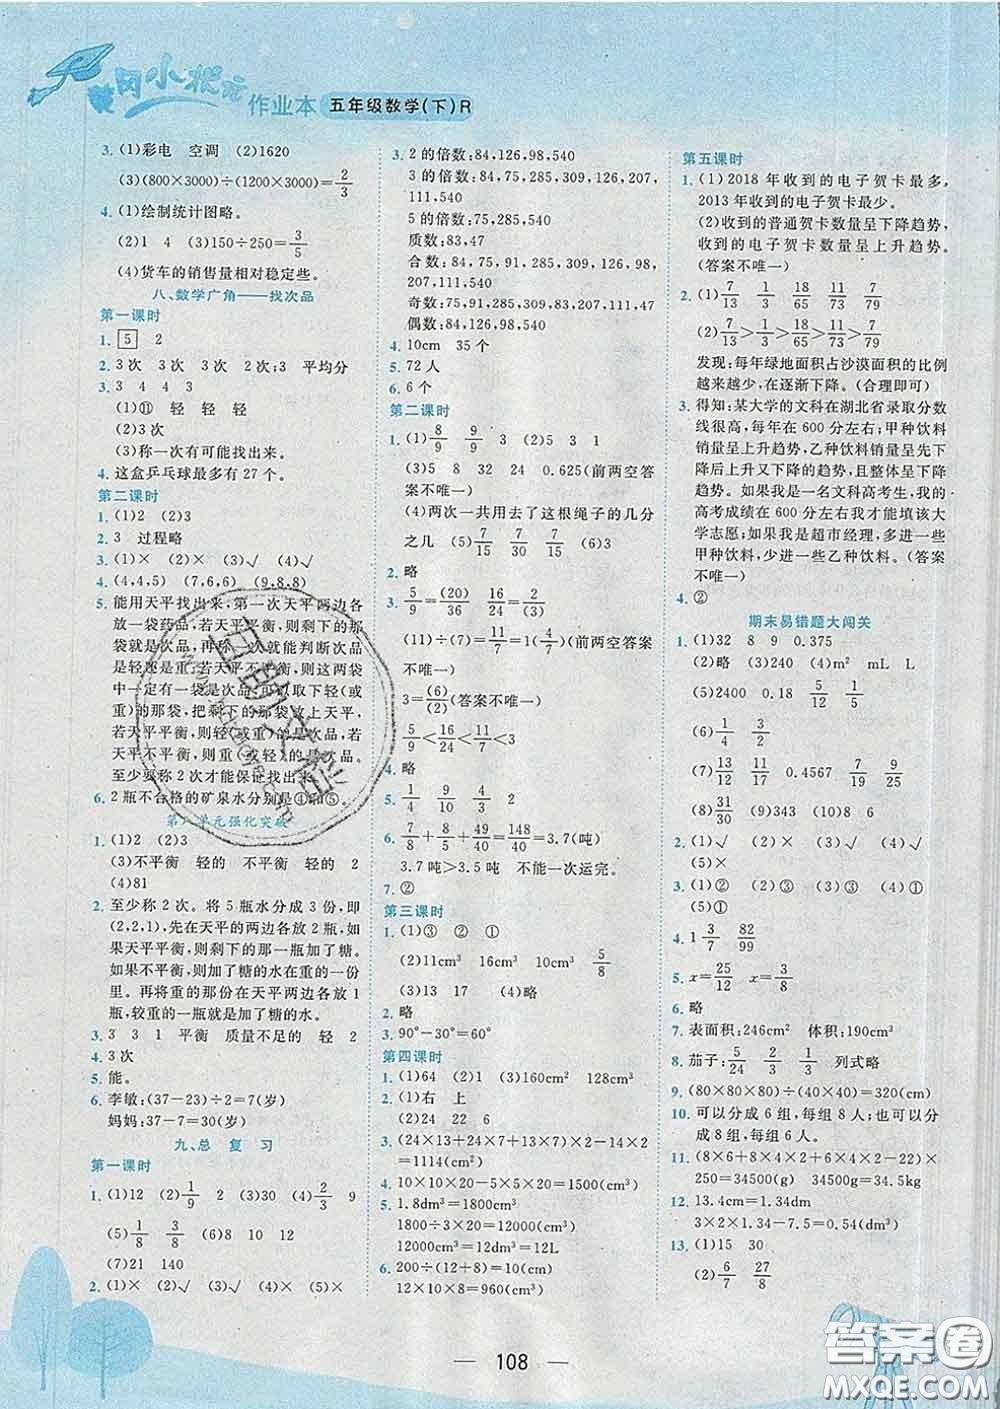 黄冈小状元
作业本 五年级数学(下)R
3. (1)彩电 空调 (2)1620
(3)(800×3000)÷(1200×3000)=2/3
4. (1)绘制统计图略。
(2)1 4 (3)150÷250=3/5
(4)货车的销售量相对稳定些。
八、数学广角——找次品
第一课时
1. 5 2
2. 3次 3次 2次;3 平均分
3. 3 4 4 3
(1)⑪ 轻 轻 轻
(2)3次
(3)称一次有可能称出来。
4. 这盒乒乓球最多有 27 个。
第二课时
1. (1)2 (2)3
2. 3 过程略
3. (1)× (2)× (3)√ (4)√
4. (4,4,5) (7,6,6) (9,8,8)
5. 能用天平找出来,第一次天平两边各
放一袋药品,若天平平衡,则剩下的那
袋为次品,根据一次就能判断次品
是轻还是重。若天平不平衡,则这两袋
中一定有一袋是次品,可以取下轻(或
重)的那袋,把剩下的那袋放上天平,
若天平平衡,则轻(或重)的那袋是次品。
若天平不平衡,则重(或轻)的是次品。
至少要称 2 次才能保证找出来。
6. 2瓶不合格的矿泉水分别是④和⑤。
第八单元强化突破
1. (1)2 (2)3
(3)不平衡 轻的 不平衡 轻的 2
(4)81
2. 至少称 2 次。将 5 瓶水分成 3 份,即
(2,2,1),先在天平的两边各放 2 瓶,如
果天平平衡,则剩下的一瓶加了糖。
如果不平衡,则加了糖的水在重的一份
里。再将重的一份在天平两边各放 1
瓶,较重的一瓶就是加了糖的水。
3. 3 3 1 平衡 质量不足的 轻 2
4. 3次
5. 能。
6. 李敏:(37-23)÷2=7(岁)
妈妈:37-7=30(岁)
九、总 复 习
第一课时
1. (1)12 (2)1/9 2 (3)30 (4)2/3 9
(5)1/8 3/8 (6)√ × √ ×
(7)21 140
2. (1)√ (2)√ (3)× (4)× (5)×
3. 2 的倍数:84,126,98,540
3 的倍数:84,75,285,126,207,
111,540
5 的倍数:75,285,540
质数:83,47
合数:84,75,91,285,126,98,
207,111,540
奇数:75,91,285,83,47,207,111
偶数:84,126,98,540
4. 10cm 35 个
5. 72 人
6. 6 个
第二课时
1. (1)8/9 9/9 3 1 (2)5
(3)5 8 32 24 0.625(前两空答
案不唯一)
(4)两次一共用去了这根绳子的几分
之几 (5)7/15 7/30 (6)3
2. 略
3. 5/9=(10)/(18)=(20)/36 16/24=2/(3)
11÷(7)=11/7=1(4/7)(前两空答案
不唯一)
3=(6)/(2)(答案不唯一)
5/9<16/24<11/7<3
4. 略
5. 1/2 1/4
6. 7/8+8/5+49/40=148/40=3.7(吨)
3.7 吨>3.5 吨 不能一次运完。
7. ②
第三课时
1. (1)③ ② ①
(2)11cm³ 16cm³ 10cm³ 5/8
(3)13 17 (4)略
2. 略
3. 90°-30°=60°
第四课时
1. (1)64 (2)1 (3)160cm² 128cm³
2. (1)右 上
(2)24 22 6
3. (24×13+24×7+13×7)×2
=1114(cm²)
4. 10×10×20-5×10×10=1500(cm³)
5. 1.8dm³=1800cm³
1800÷3×20=12000(cm³)
12000cm³=12dm³=12L
6. 200÷(12+8)=10(cm)
12×10×8=960(cm³)
第五课时
1. (1)2018 年收到的电子贺卡最多,
2013 年收到的电子贺卡最少。
(2)收到的普通贺卡数量呈下降趋势,
收到的电子贺卡数量呈上升趋势。
(答案不唯一)
2. (1)7/13 1/3 18/65 11/73 7/79
(2)7/13>1/3>18/65>11/73>7/79
发现:每年绿地面积占沙漠面积的比例
越来越少,在逐渐下降。(合理即可)
3. 得知:某大学的文科在湖北省录取分数
线很高,每年在 600 分左右;甲种饮料
销量呈上升趋势,乙种饮料销量呈先
上升再下降的趋势,且整体呈下降
趋势。如果我是一名文科高考生,我的
高考成绩在 600 分左右才能填该大
学志愿;如果我是超市经理,多进一些
甲种饮料,少进一些乙种饮料。(答案
不唯一)
4. ②
期末易错题大闯关
1. (1)32 8 9 0.375
(2)略 (3)240 (4)m² mL L
(5)2400 0.18 5/12 1/4
(6)1/7 4/7
(7)13/12 8/11 0.4567 15/8 27/9
(8)31/30 (9)343cm³ 210cm²
2. (1)× (2)× (3)√ (4)√
(5)×
3. (1)① (2)② (3)② (4)②
(5)①
4. 1 3/7 82/99
5. x=25/12 x=3/8
6. 略
7. 表面积:246cm² 体积:190cm³
8. 茄子:5/24 2/3 7/24 列式略
9. (80×80×80)÷(40×40)=320(cm)
10. 可以分成 6 组,每组 8 人;也可以
分成 8 组,每组 6 人。
12. 13.4cm=1.34dm
3×2×1.34-7.5=0.54(dm³)
13. (1)15 30
(2)6/7 27/8
108
答案圈
MXQE.COM